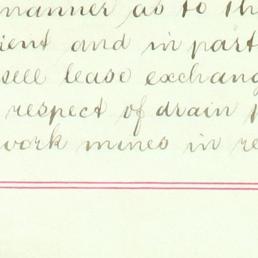 manner as to th
ient and in part
sell lease exchang
respect of drain
work mines in re